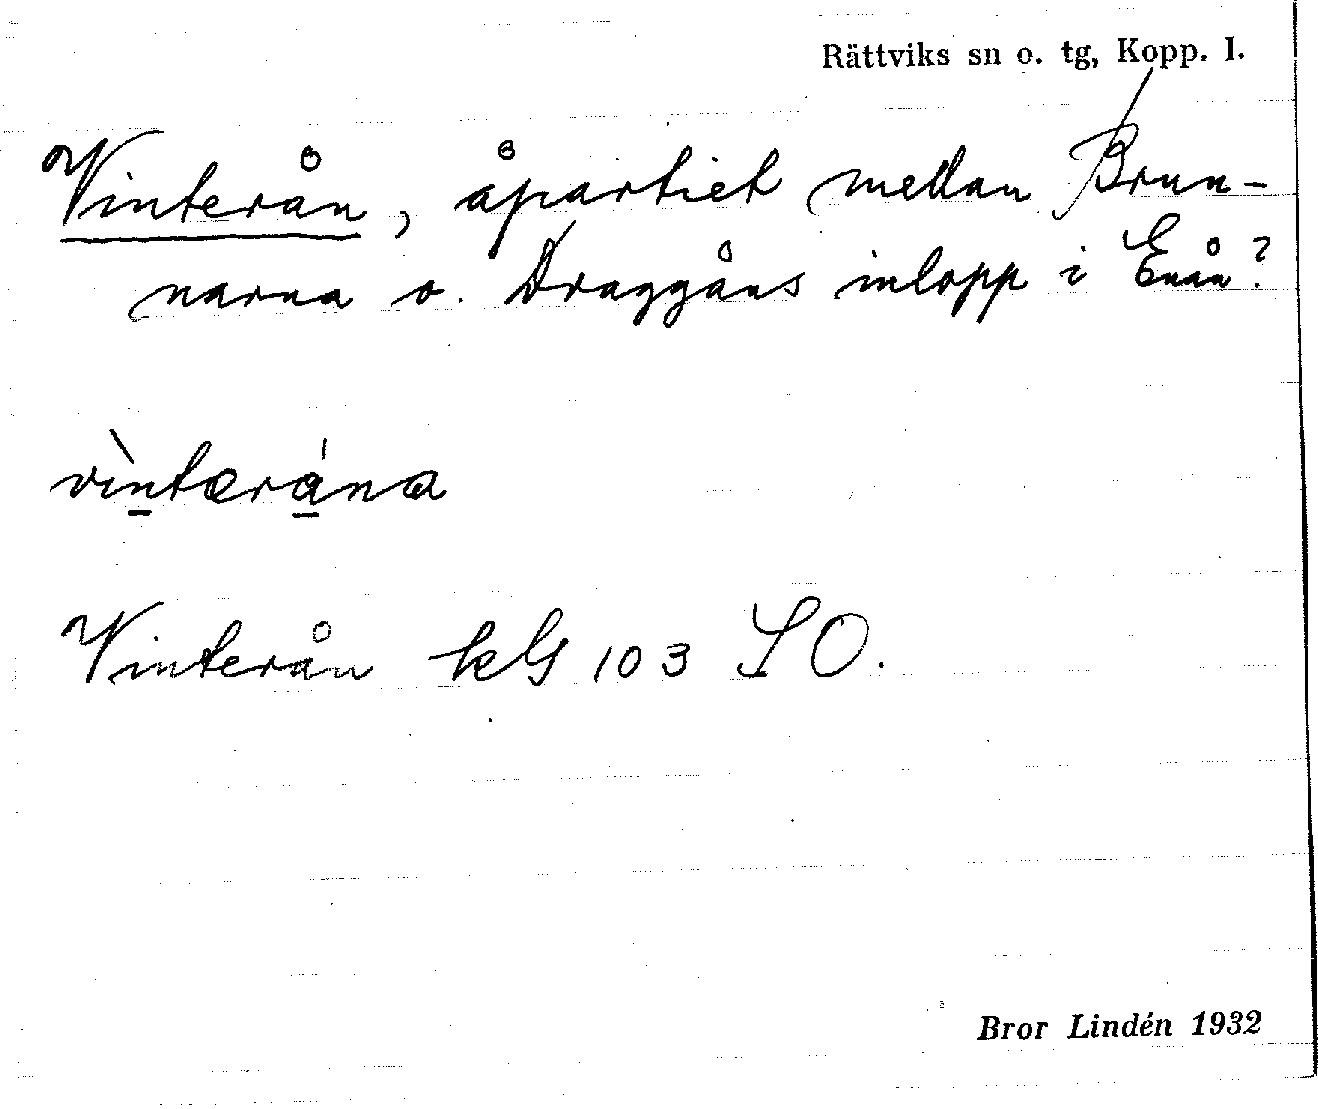 Rättviks sn o. tg, Kopp. l.
Vinterån, åpartiet mellan Brun-
narna o. Draggåns inlopp i Enån?
vìntæråna
Vinterån kG 103 SO.
Bror Lindén 1932